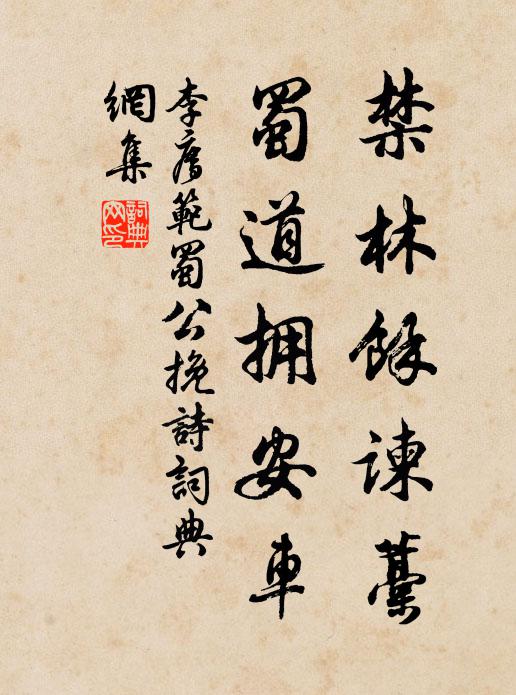 禁林餘諫藁
蜀道拥安車
李廌範蜀公挽詩詞典
網集
詞典網印